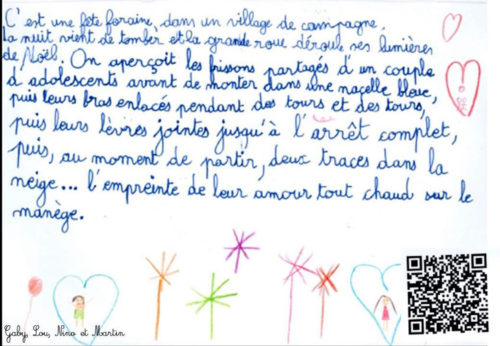 C'est une fête foraine, dans un village de campagne.
La nuit vient de tomber et la grande roue déroule ses lumières
de Noël. On aperçoit les frissons partagés d'un couple
d'adolescents avant de monter dans une nacelle bleue,
puis leurs bras enlacés pendant des tours et des tours,
puis leurs lèvres jointes jusqu'à l'arrêt complet,
puis, au moment de partir, deux traces dans la
neige... l'empreinte de leur amour tout chaud sur le
manège.
Gaby, Lou, Nino et Martin